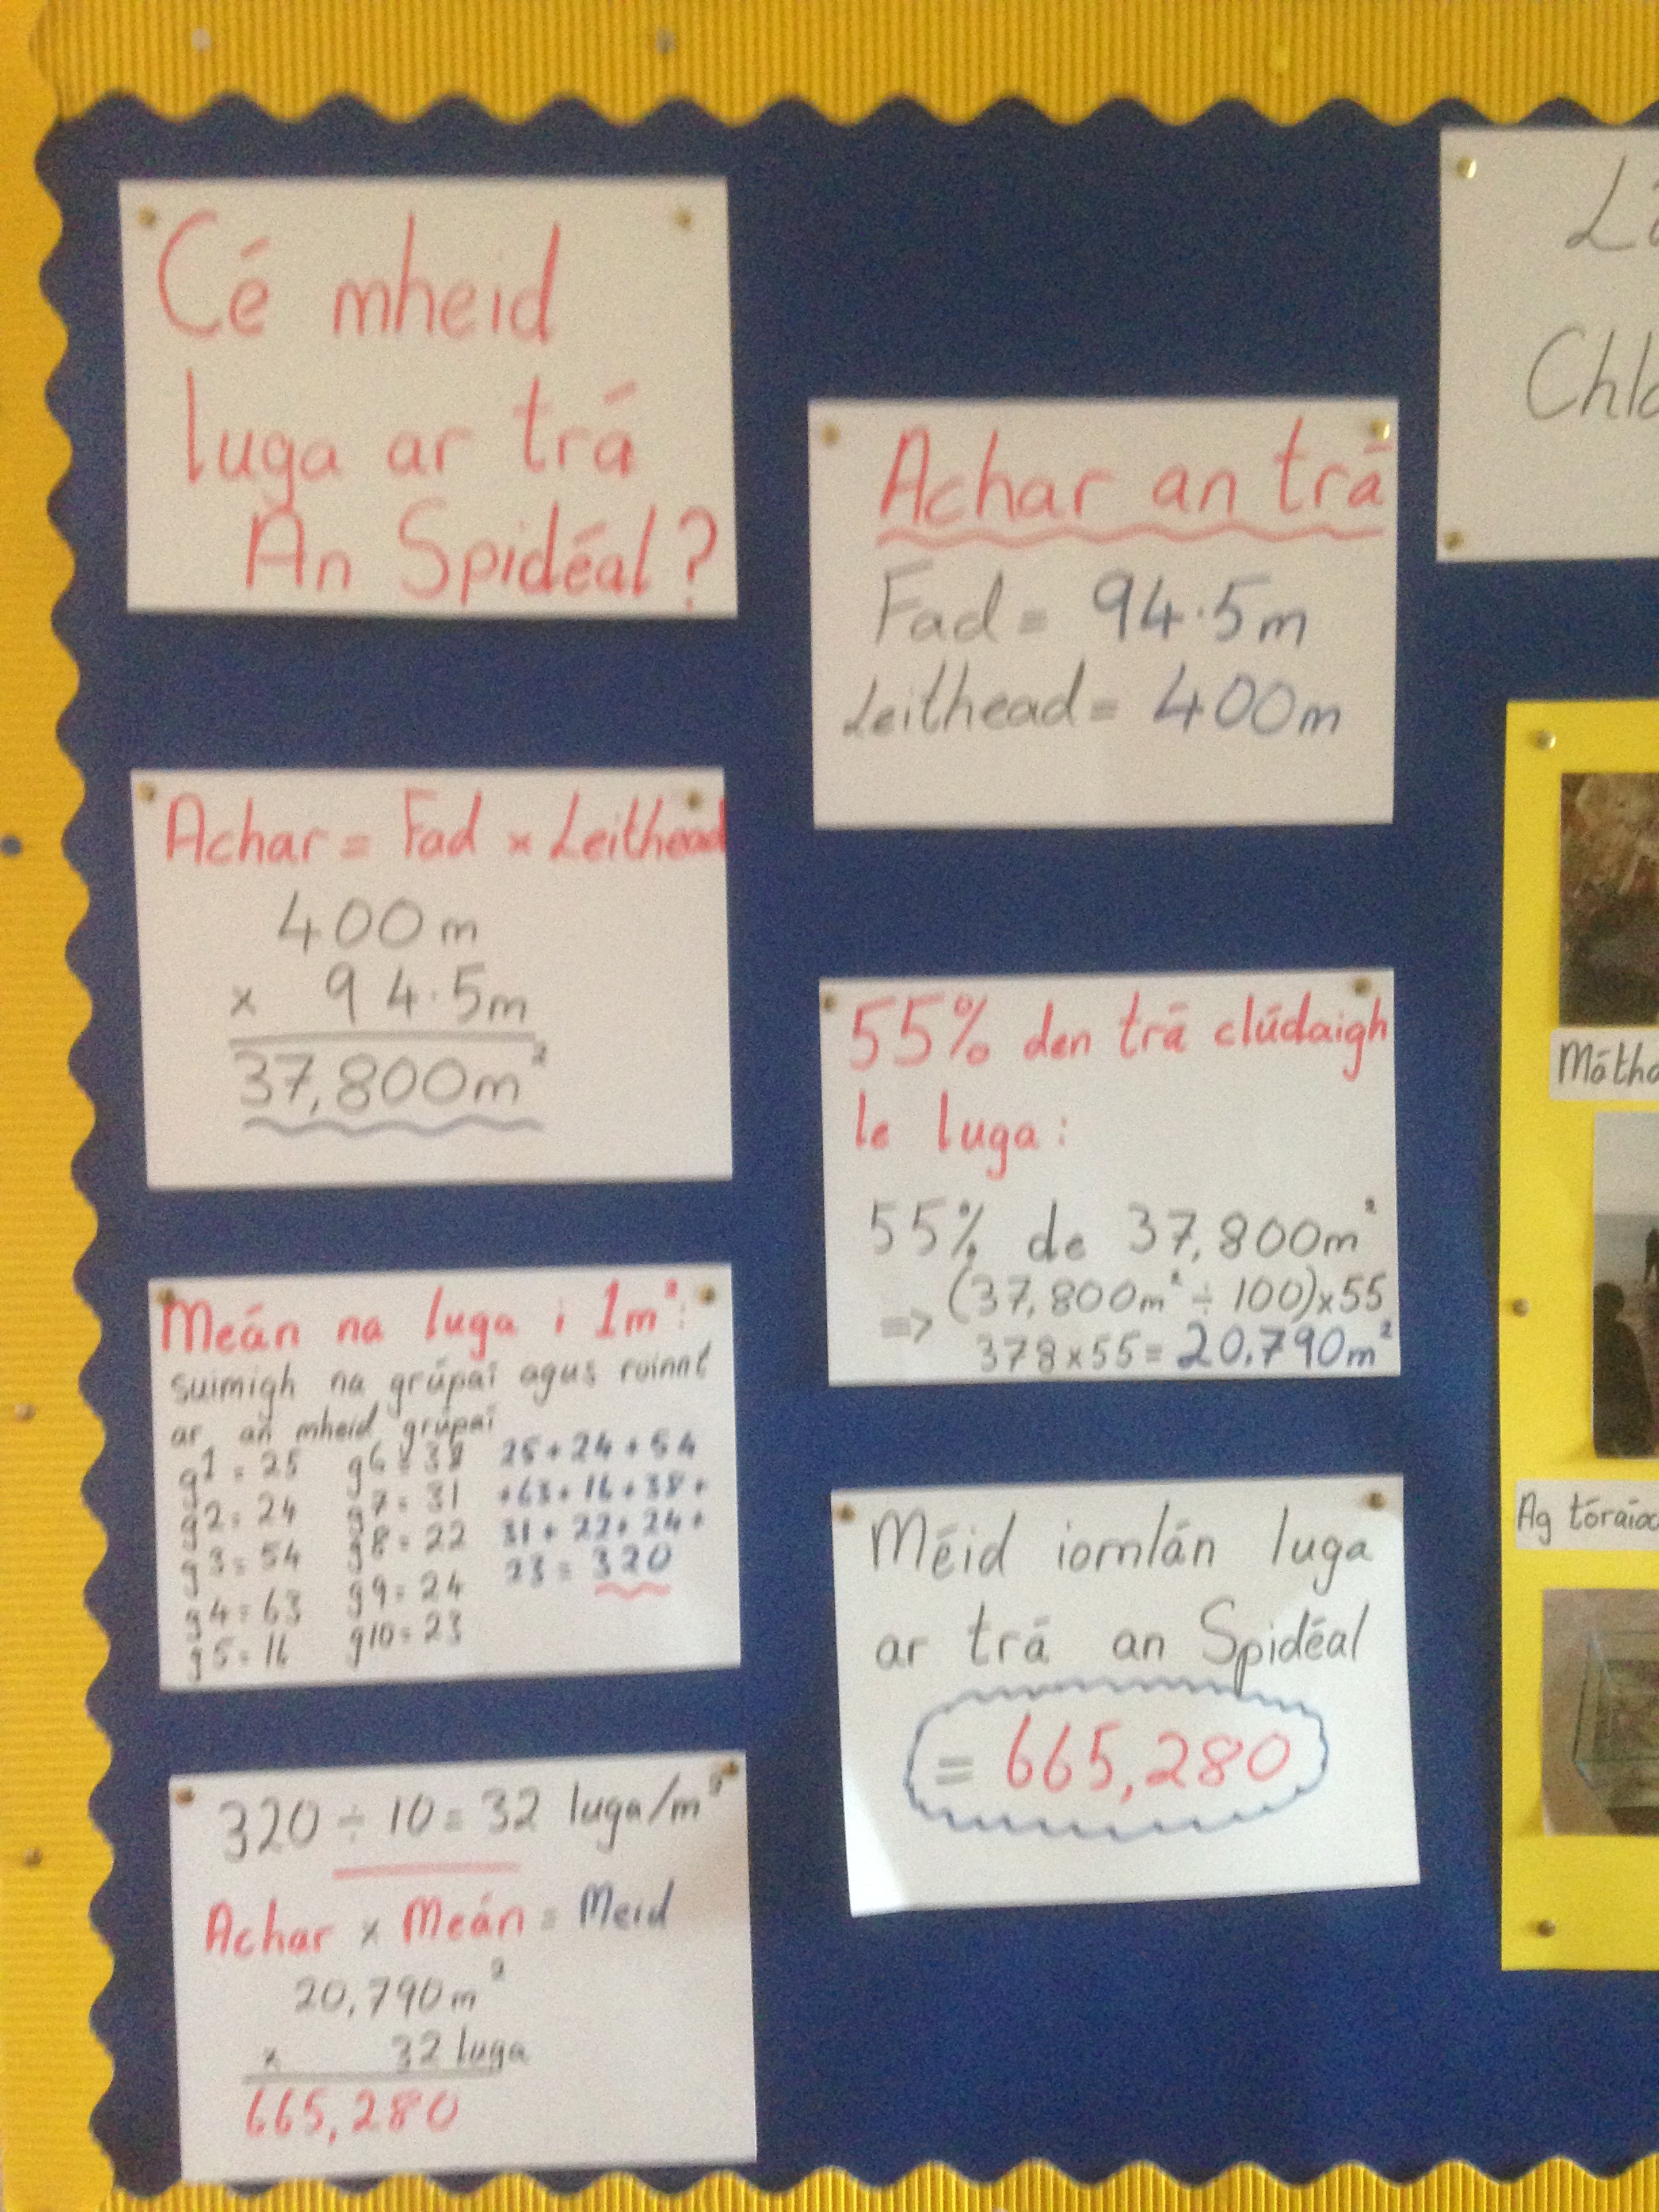 Cé mheid
luga ar trá
An Spidéal?
Achar an trá
Fad = 94.5m
Leithead = 400m
Achar = Fad × Leithead
400m
× 94.5m
37,800m²
55% den trá clúdaigh
le luga:
55% de 37,800m²
=> (37,800m² ÷ 100)×55
378×55 = 20,790m²
Meán na luga i 1m²:
suimigh na grúpaí agus roinnt
ar an mheid grúpaí
g1 = 25
g2 = 24
g3 = 54
g4 = 63
g5 = 16
g6 = 38
g7 = 31
g8 = 22
g9 = 24
g10 = 23
25 + 24 + 54
+63 + 16 + 38 +
31 + 22 + 24 +
23 = 320
320 ÷ 10 = 32 luga/m²
Achar × Meán = Meid
20,790m²
× 32 luga
665,280
Méid iomlán luga
ar trá an Spidéal
= 665,280
Ag